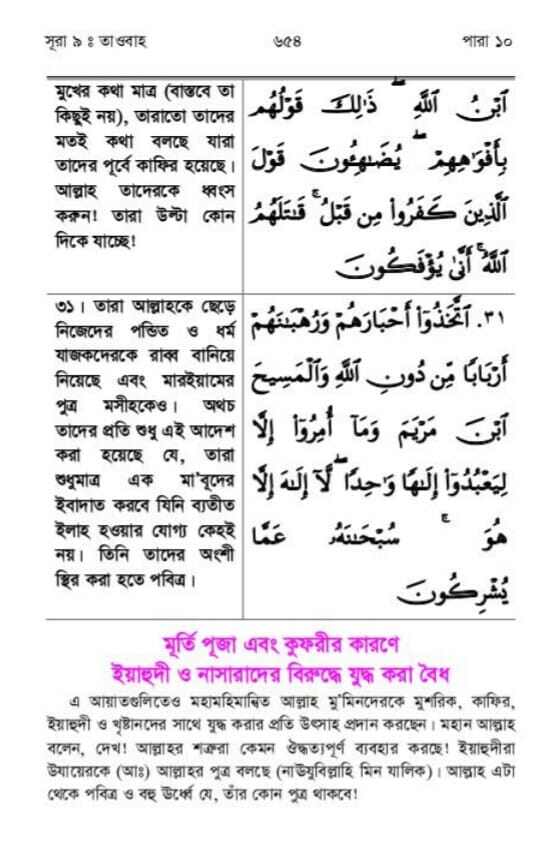 সূরা ৯ ঃ তাওবাহ ৬৫৪ পারা ১০
মুখের কথা মাত্র (বাস্তবে তা
কিছুই নয়), তারাতো তাদের
মতই কথা বলছে যারা
তাদের পূর্বে কাফির হয়েছে।
আল্লাহ তাদেরকে ধ্বংস
করুন! তারা উল্টা কোন
দিকে যাচ্ছে!
ٱبْنُ ٱللَّهِ ۖ ذَٰلِكَ قَوْلُهُم
بِأَفْوَٰهِهِمْ ۖ يُضَـٰهِـُٔونَ قَوْلَ
ٱلَّذِينَ كَفَرُوا۟ مِن قَبْلُ ۚ قَـٰتَلَهُمُ
ٱللَّهُ ۚ أَنَّىٰ يُؤْفَكُونَ
৩১। তারা আল্লাহকে ছেড়ে
নিজেদের পন্ডিত ও ধর্ম
যাজকদেরকে রাব্ব বানিয়ে
নিয়েছে এবং মারইয়ামের
পুত্র মসীহকেও। অথচ
তাদের প্রতি শুধু এই আদেশ
করা হয়েছে যে, তারা
শুধুমাত্র এক মা'বূদের
ইবাদাত করবে যিনি ব্যতীত
ইলাহ হওয়ার যোগ্য কেহই
নয়। তিনি তাদের অংশী
স্থির করা হতে পবিত্র।
٣١. ٱتَّخَذُوٓا۟ أَحْبَارَهُمْ وَرُهْبَـٰنَهُمْ
أَرْبَابًا مِّن دُونِ ٱللَّهِ وَٱلْمَسِيحَ
ٱبْنَ مَرْيَمَ وَمَآ أُمِرُوٓا۟ إِلَّا
لِيَعْبُدُوٓا۟ إِلَـٰهًا وَٰحِدًا ۖ لَّآ إِلَـٰهَ إِلَّا
هُوَ ۚ سُبْحَـٰنَهُۥ عَمَّا
يُشْرِكُونَ
মূর্তি পূজা এবং কুফরীর কারণে
ইয়াহুদী ও নাসারাদের বিরুদ্ধে যুদ্ধ করা বৈধ
এ আয়াতগুলিতেও মহামহিমান্বিত আল্লাহ মু'মিনদেরকে মুশরিক, কাফির,
ইয়াহুদী ও খৃষ্টানদের সাথে যুদ্ধ করার প্রতি উৎসাহ প্রদান করছেন। মহান আল্লাহ
বলেন, দেখ! আল্লাহর শত্রুরা কেমন ঔদ্ধত্যপূর্ণ ব্যবহার করছে! ইয়াহুদীরা
উযায়েরকে (আঃ) আল্লাহর পুত্র বলছে (নাঊযুবিল্লাহি মিন যালিক)। আল্লাহ এটা
থেকে পবিত্র ও বহু ঊর্ধ্বে যে, তাঁর কোন পুত্র থাকবে!